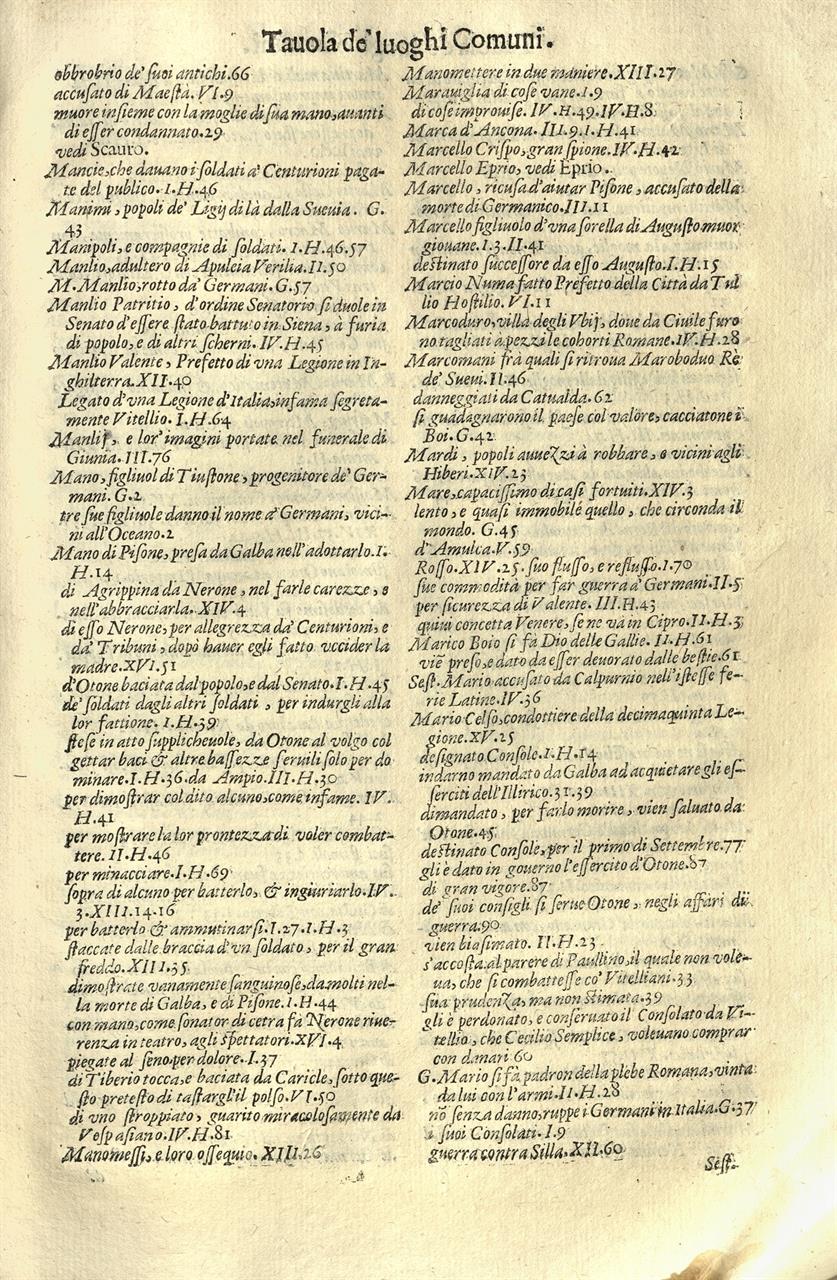 Tauola de' luoghi Comuni.
obbrobrio de' suoi antichi.66
accusato di Maestà. VI.9
muore insieme con la moglie di sua mano, auanti
di esser condannato.29
vedi Scauro.
Mancie, che dauano i soldati a' Centurioni paga-
te del publico. I.H.46
Manimi, popoli de' Ligij di là dalla Sueuia. G.
43
Manipoli, e compagnie di soldati. I.H.46.57
Manlio, adultero di Apuleia Verilia.II.50
M. Manlio, rotto da' Germani. G.57
Manlio Patritio, d'ordine Senatorio si duole in
Senato d'essere stato battuto in Siena, à furia
di popolo, e di altri scherni. IV.H.45
Manlio Valente, Prefetto di vna Legione in In-
ghilterra. XII.40
Legato d'vna Legione d'Italia, infama segreta-
mente Vitellio. I.H.64
Manlij, e lor' imagini portate nel funerale di
Giunia. III.76
Mano, figliuol di Tiustone, progenitore de' Ger-
mani. G.2
tre sue figliuole danno il nome a' Germani, vici-
ni all'Oceano.2
Mano di Pisone, presa da Galba nell'adottarlo. I.
H.14
di Agrippina da Nerone, nel farle carezze, e
nell'abbracciarla. XIV.4
di esso Nerone, per allegrezza da' Centurioni, e
da' Tribuni, dopò hauer egli fatto vccider la
madre. XVI.51
d'Otone baciata dal popolo, e dal Senato. I.H.45
de' soldati dagli altri soldati, per indurgli alla
lor fattione. I.H.39
stese in atto supplicheuole, da Otone al volgo col
gettar baci & altre bassezze seruili solo per do
minare. I.H.36. da Ampio. III.H.30
per dimostrar col dito alcuno, come infame. IV.
H.41
per mostrare la lor prontezza di voler combat-
tere. II.H.46
per minacciare. I.H.69
sopra di alcuno per batterlo, & ingiuriarlo. IV.
3.XIII.14.16
per batterlo & ammutinarsi. I.27.I.H.3
staccate dalle braccia d'vn soldato, per il gran
freddo. XIII.35
dimostrate vanamente sanguinose, da molti nel-
la morte di Galba, e di Pisone. I.H.44
con mano, come sonator di cetra fà Nerone riue-
renza in teatro, agli spettatori. XVI.4
piegate al seno per dolore. I.37
di Tiberio tocca, e baciata da Caricle, sotto que-
sto pretesto di tastargl'il polso. VI.50
di vno stroppiato, guarito miracolosamente da
Vespasiano. IV.H.81
Manomessi, e loro ossequio. XIII.26
Manomettere in due maniere. XIII.27
Marauiglia di cose vane. I.9
di cose improuise. IV.H.49.IV.H.8
Marca d'Ancona. III.9.I.H.41
Marcello Crispo, gran spione. IV.H.42
Marcello Eprio, vedi Eprio.
Marcello, ricusa d'aiutar Pisone, accusato della
morte di Germanico. III.11
Marcello figliuolo d'vna sorella di Augusto muor
giouane. I.3.II.41
destinato successore da esso Augusto. I.H.15
Marcio Numa fatto Prefetto della Città da Tul
lio Hostilio. VI.11
Marcoduro, villa degli Vbij, doue da Ciuile furo
no tagliati à pezzi le cohorti Romane. IV.H.28
Marcomani frà quali si ritroua Maroboduo Rè
de' Sueui. II.46
danneggiati da Catualda. 62
si guadagnarono il paese col valore, cacciatone i
Boi. G.42
Mardi, popoli auuezzi à robbare, e vicini agli
Hiberi. XIV.23
Mare, capacissimo di casi fortuiti. XIV.3
lento, e quasi immobile quello, che circonda il
mondo. G.45
d'Amulca. V.59
Rosso. XIV.25. suo flusso, e reflusso. I.70
sue commodità per far guerra a' Germani. II.5
per sicurezza di Valente. III.H.43
quiui concetta Venere, se ne và in Cipro. II.H.3
Marico Boio si fà Dio delle Gallie. II.H.61
viē preso, e dato da esser deuorato dalle bestie.61
Sest. Mario accusato da Calpurnio nell'istesse fe-
rie Latine. IV.36
Mario Celso, condottiere della decimaquinta Le-
gione. XV.25
designato Console. I.H.14
indarno mandato da Galba ad acquietare gli es-
serciti dell'Illirico. 31.39
dimandato, per farlo morire, vien saluato da
Otone. 45
destinato Console, per il primo di Settembre. 77
gli è dato in gouerno l'essercito d'Otone. 87
di gran vigore. 87
de' suoi consigli si serue Otone, negli affari di
guerra. 90
vien biasimato. II.H.23
s'accosta al parere di Paullino, il quale non vole-
ua, che si combattesse co' Vitelliani. 33
sua prudenza, ma non stimata. 39
gli è perdonato, e conseruato il Consolato da Vi-
tellio, che Cecilio Semplice, voleuano comprar
con danari 60
G. Mario si fà padron della plebe Romana, vinta
da lui con l'armi. II.H.28
nō senza danno, ruppe i Germani in Italia. G.37
i suoi Consolati. I.9
guerra contra Silla. XII.60
Sest.